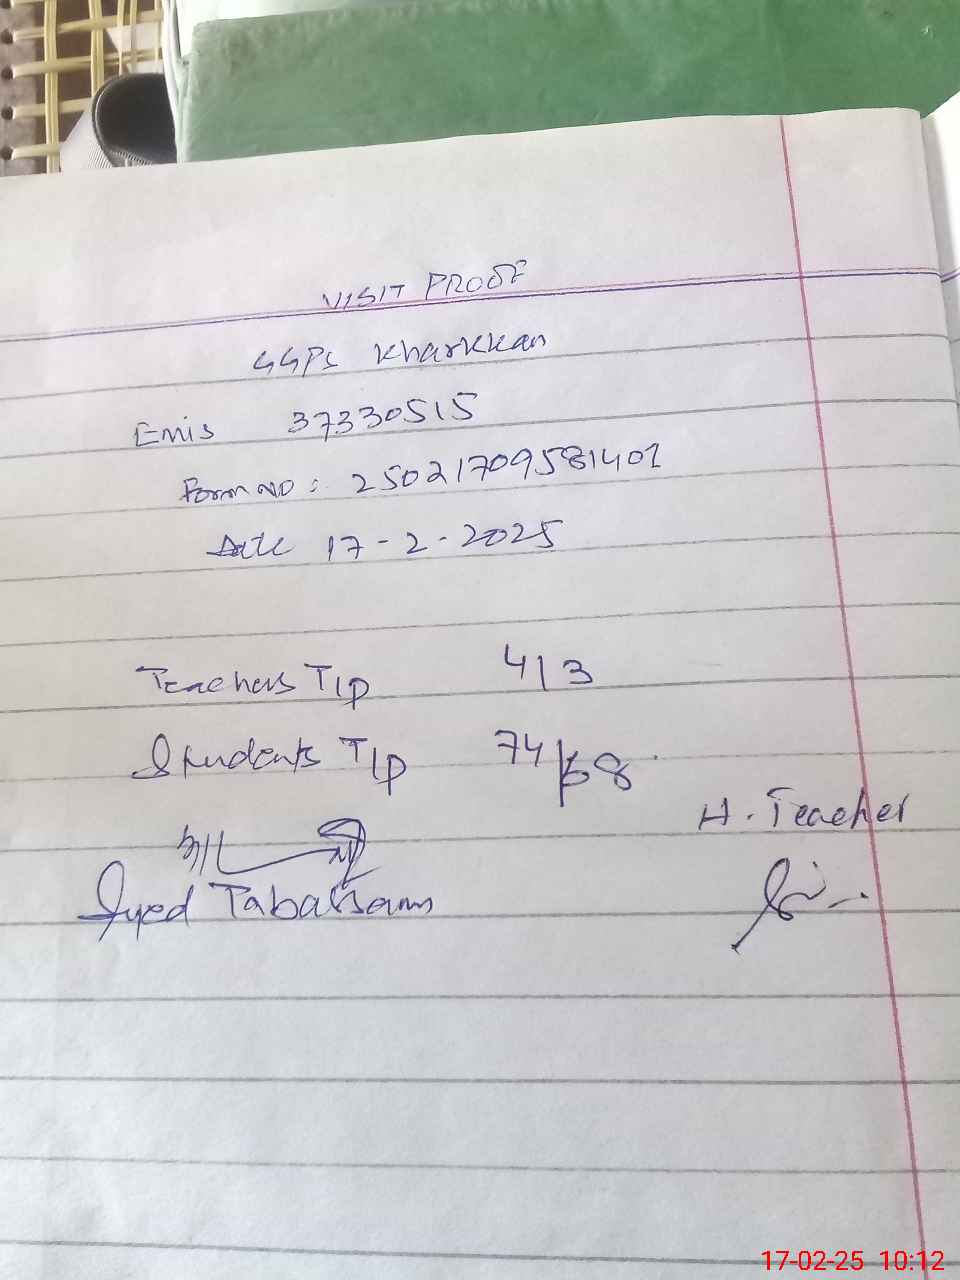 VISIT PROOF
GGPS Kharkkan
Emis 37330515
Form NO: 25021709581401
Date 17-2-2025
Teachers T/P 4/3
Students T/P 74/68
H. Teacher
Syed Tabassum
17-02-25 10:12